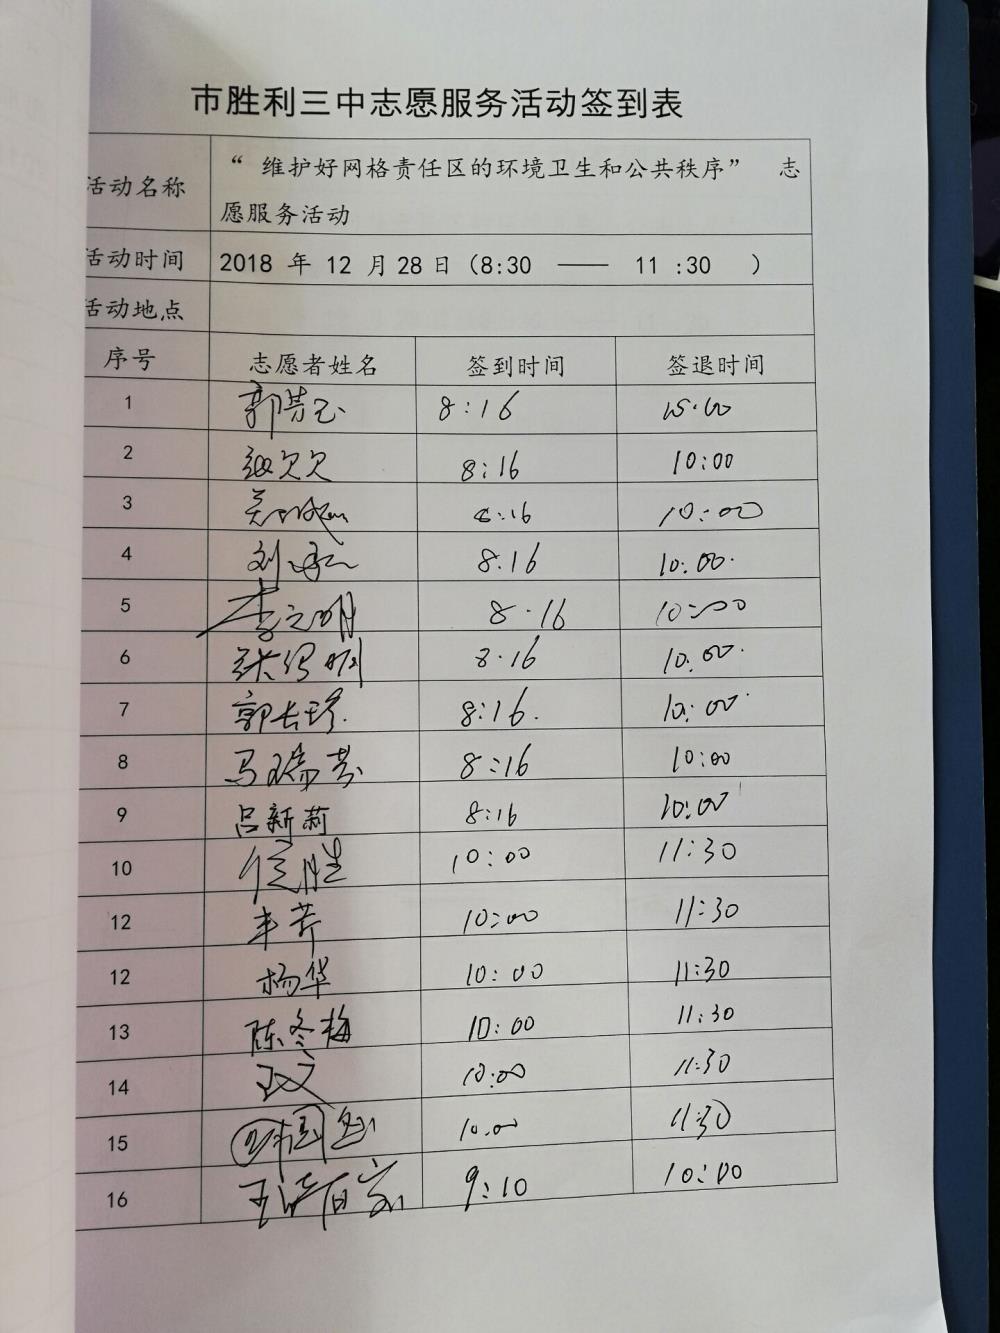 市胜利三中志愿服务活动签到表
活动名称 “ 维护好网格责任区的环境卫生和公共秩序” 志
愿服务活动
活动时间 2018 年 12 月 28 日（8:30 —— 11 :30 ）
活动地点
序号 志愿者姓名 签到时间 签退时间
1 8:16
2 8:16 10:00
3 8:16 10:00
4 刘 8.16 10:00.
5 李立明 8.16 10:00
6 张 8.16 10:00.
7 郭长珍. 8:16. 10:00
8 马瑞芬 8:16 10:00
9 吕新莉 8:16 10:00
10 侯胜 10:00 11:30
12 丰芹 10:00 11:30
12 杨华 10:00 11:30
13 陈冬梅 10:00 11:30
14 王文 10:00 11:30
15 10.00 11:30
16 9:10 10:00